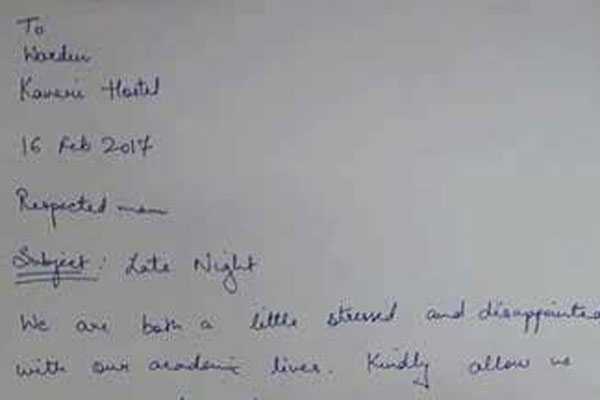 To
Warden
Kaveri Hostel
16 Feb 2017
Respected mam
Subject: Late Night
We are both a little stressed and disappointed
with our academic lives. Kindly allow us